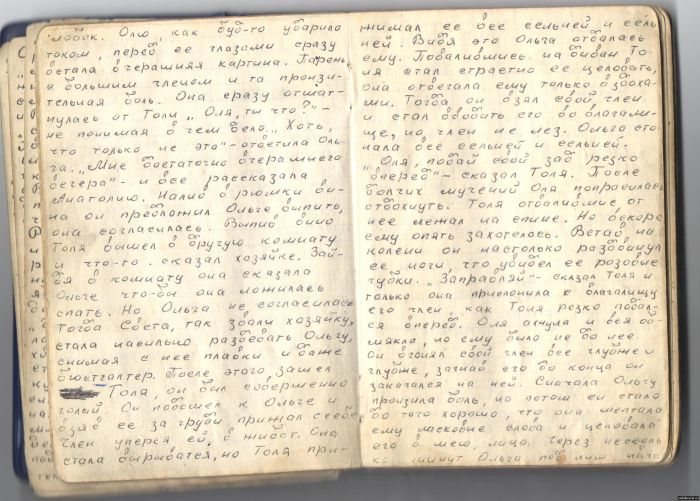 лобок. Олю, как буд-то ударило
током, перед ее глазами сразу
встала вчерашняя картина. Парень
с большим членом и та произи-
тельная боль. Она сразу отшат-
нулась от Толи „Оля, ти что?"-
не понимая в чем дело. „Хоть,
что только не это" - ответила Оль-
га. „Мне достаточно вчерашнего
вечера" - и все рассказала
Анатолию. Налив в рюмки ви-
на он предложил Ольге випить,
она согласилась. Выпив вино
Толя вишел в другую комнату
и что-то сказал хозяйке. Зай-
дя в комнату она сказала
Ольге что-би она ложилась
спать. Но Ольга не согласилась
Тогда Света, так звали хозяйку,
стала насильно раздевать Ольгу,
снимая с нее плавки и даже
бюстгалтер. После этого зашел
Толя, он бил совершенно
голый. Он подошел к Ольге и
взяв ее за груди прижал к себе
Член уперся ей в живот. Она
стала выриватся, но Толя при-
жимал ее все сельней и сель
ней. Видя это Ольга отдалась
ему. Повалившись на диван То-
ля стал страстно ее целовать,
она отвечала ему только вздоха-
ми. Тогда он взял свой член
и стал вводить его во влагали-
ще, но член не лез. Ольга сто-
нала все сельней и сельней.
„Оля, подай свой зад резко
вперед" - сказал Толя. После
долгих мучений Оля попросилась
отдохнуть. Толя отвалившись от
нее лежал на спине. Но вскоре
ему опять захотелось. Встав на
колени он настолько раздвинул
ее ноги, что увидел ее розовие
губки. „Заправляй" - сказал Толя и
только она прислонила к влагалищу
его член, как Толя резко подал-
ся вперед. Оля ахнула и вся об-
мякла, но ему было не до нее.
Он вгонял свой член все глубже и
глубже, загнав его до конца он
закачался на ней. Сначала Ольгу
произила боль, но потом ей стало
до того хорошо, что она шептала
ему ласковие слова и целовала
его в шею, лицо. Через несколь
ко минут Ольга под ним нача